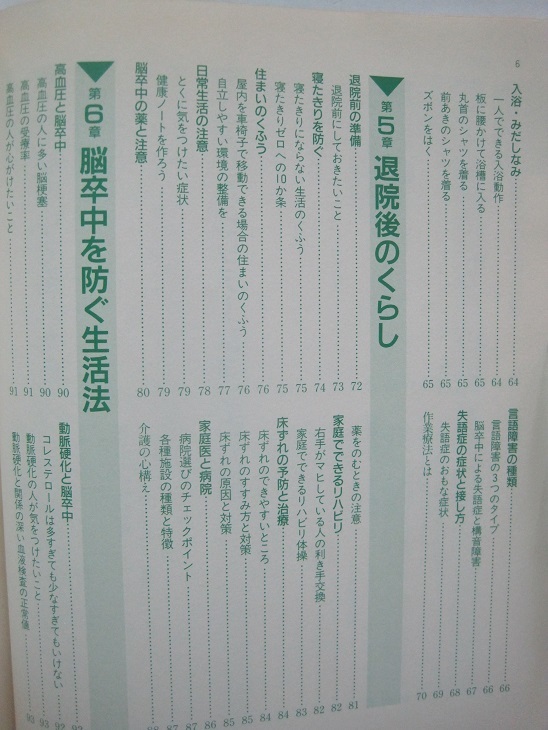 6
入浴・みだしなみ……64
一人でできる入浴動作……64
板に腰かけて浴槽に入る……65
丸首のシャツを着る……65
前あきのシャツを着る……65
ズボンをはく……65
言語障害の種類……66
言語障害の3つのタイプ……66
脳卒中による失語症と構音障害……67
失語症の症状と接し方……68
失語症のおもな症状……69
作業療法とは……70
第5章 退院後のくらし
退院前の準備……72
退院前にしておきたいこと……73
寝たきりを防ぐ……74
寝たきりにならない生活のくふう……75
寝たきりゼロへの10か条……75
住まいのくふう……76
屋内を車椅子で移動できる場合の住まいのくふう……76
自立しやすい環境の整備を……77
日常生活の注意……78
とくに気をつけたい症状……79
健康ノートを作ろう……79
脳卒中の薬と注意……80
薬をのむときの注意……81
家庭でできるリハビリ……82
右手がマヒしている人の利き手交換……82
家庭でできるリハビリ体操……83
床ずれの予防と治療……84
床ずれのできやすいところ……84
床ずれのすすみ方と対策……85
床ずれの原因と対策……85
家庭医と病院……86
病院選びのチェックポイント……87
各種施設の種類と特徴……88
介護の心構え……88
第6章 脳卒中を防ぐ生活法
高血圧と脳卒中……90
高血圧の人に多い脳梗塞……90
高血圧の受療率……91
高血圧の人が心がけたいこと……91
動脈硬化と脳卒中……92
コレステロールは多すぎても少なすぎてもいけない……92
動脈硬化の人が気をつけたいこと……93
動脈硬化と関係の深い血液検査の正常値……93